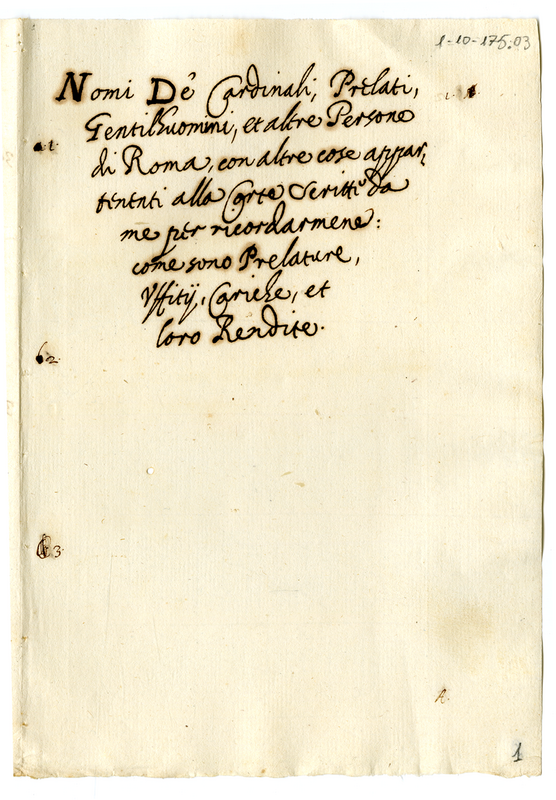 1-10-175.03
Nomi De' Cardinali, Prelati,
Gentilhuomini, et altre Persone
di Roma, con altre cose appar,
tenenti alla Corte Scritti da
me per ricordarmene:
come sono Prelature,
Uffitij, Cariche, et
loro Rendite.
1.
2.
3.
A.
1